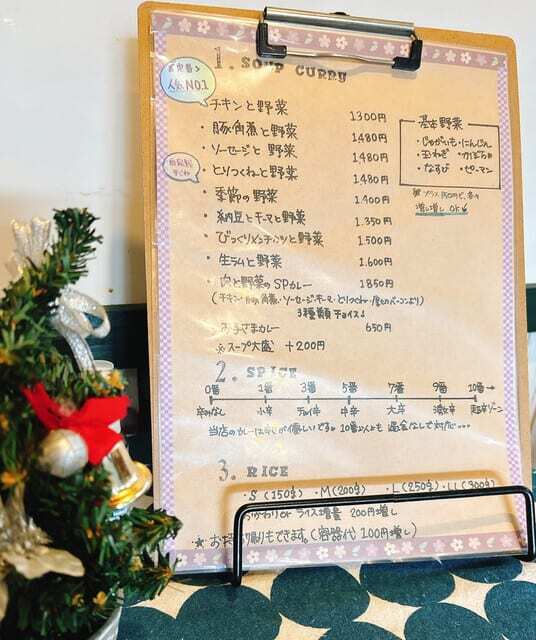 1. SOUP CURRY
人気NO.1
チキンと野菜 1300円
・豚角煮と野菜 1480円
・ソーセージと野菜 1,480円
・とりつくねと野菜 1,480円
・季節の野菜 1,400円
・納豆とキーマと野菜 1.350円
・びっくりメンチカツと野菜 1500円
・生ラムと野菜 1.600円
・肉と野菜のSPカレー 1850円
3種類チョイス♩
お子さまカレー 650円
※スープ大盛 +200円
基本野菜
・じゃがいも・にんじん
・玉ねぎ ・かぼちゃ
・なすび ・ピーマン
増し増し OK
2. SPICE
0番 1番 3番 5番 7番 9番 10番→
辛みなし 小辛 中辛 大辛 激辛 超辛ゾーン
当店のカレーは辛さが優しいです。10番以上も 追金なしで対応...
3. RICE
・S (150g) ・M (200g) ・L (250g)・LL (300g)
おかわりor ライス増量 200円増し
★ お持ち帰りもできます。(容器代 100円増し)